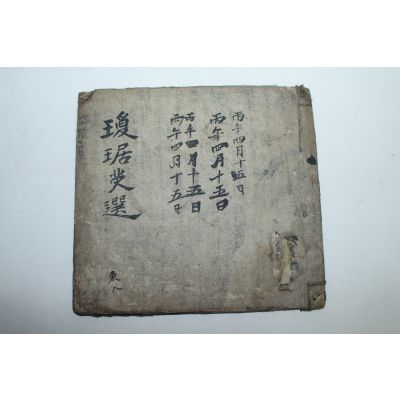 丙午四月十五日
丙午四月十五日
丙午四月十五日
丙午四月十五日
瓊琚選
東